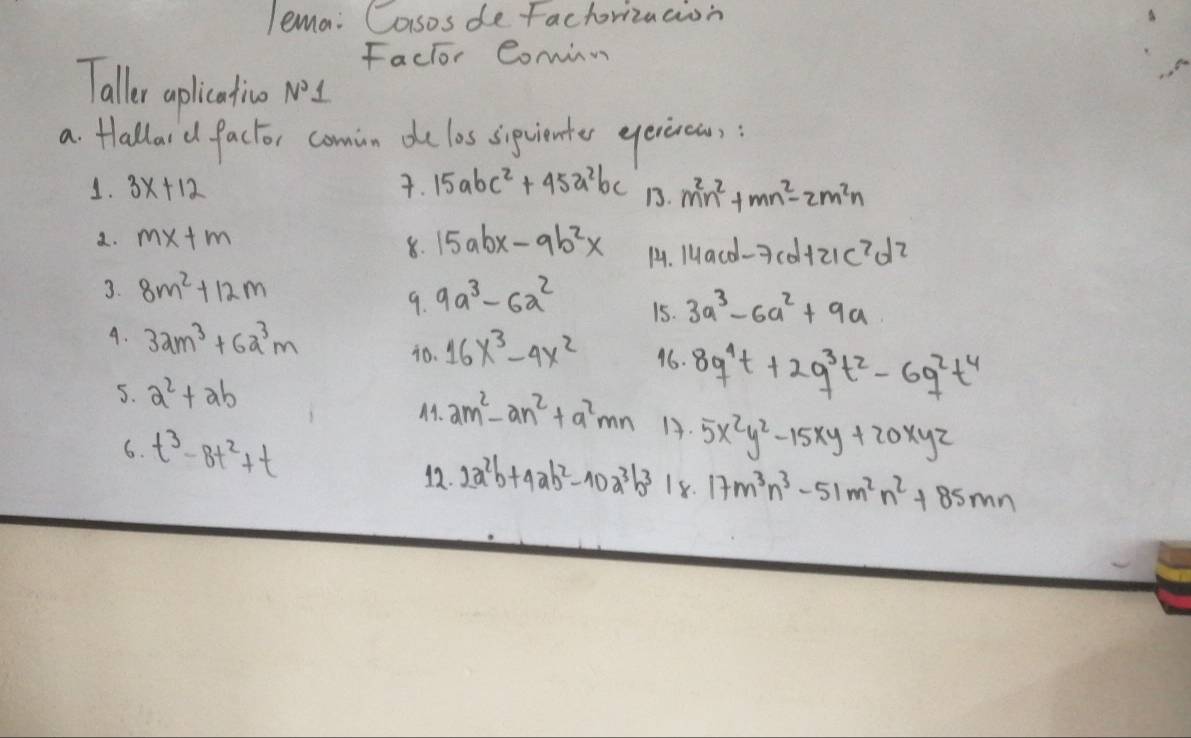 Tema: Casos de Factorización
Factor Común
Taller aplicativo Nº1
a. Hallar el factor común de los siguientes ejercicios:
1. 3x+12
2. mx+m
3. 8m²+12m
4. 3am³+6a³m
5. a²+ab
6. t³-8t²+t
7. 15abc²+45a²bc
8. 15abx-9b²x
9. 9a³-6a²
10. 16x³-4x²
11. am²-an²+a²mn
12. 2a²b+4ab²-10a³b³
13. m²n²+mn²-2m²n
14. 14acd-7cd+21c²d²
15. 3a³-6a²+9a
16. 8q⁴t+2q³t²-6q²t⁴
17. 5x²y²-15xy+20xyz
18. 17m³n³-51m²n²+85mn